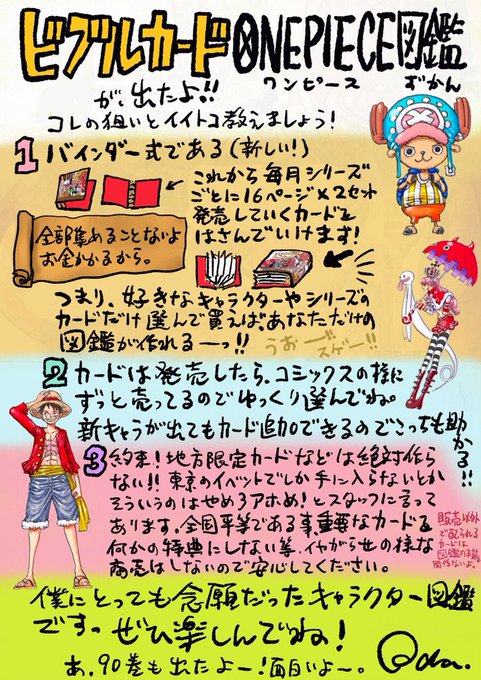 ビブルカードONEPIECE図鑑
ワンピース ずかん
が、出たよ!!
コレの狙いとイイトコ教えましょう!
1 バインダー式である(新しい!)
これから毎月シリーズ
ごとに16ページ×2セット
発売していくカードを
はさんでいけます!
全部集めることないよ
お金かかるから。
つまり、好きなキャラクターやシリーズの
カードだけ選んで買えば、あなただけの
図鑑が作れるーっ!!
うおーースゲー!!
2 カードは発売したら、コミックスの様に
ずっと売ってるのでゆっくり選んでね。
新キャラが出てもカード追加できるのでこっちも助かる!!
3 約束!地方限定カードなどは絶対作ら
ない!!東京のイベントでしか手に入らないとか
そういうのはやめろアホめ!とスタッフに言って
あります。全国平等である事、重要なカードを
何かの特典にしない等、イヤがらせの様な
商売はしないので安心してください。
販売以外
で配られる
カードは
図鑑の本編と
関係ないよ。
僕にとっても念願だったキャラクター図鑑
ですっ ぜひ楽しんでね!
あ、90巻も出たよー!面白いよー。
Oda.